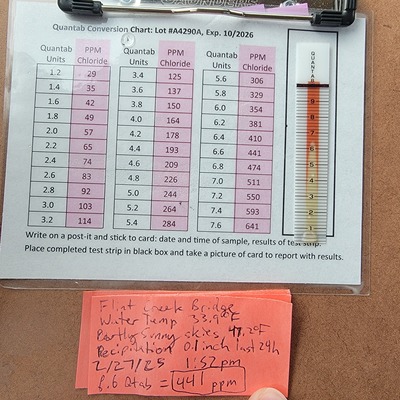 Quantab Conversion Chart: Lot #A4290A, Exp. 10/2026
Quantab Units PPM Chloride Quantab Units PPM Chloride Quantab Units PPM Chloride
1.2 29 3.4 125 5.6 306
1.4 35 3.6 137 5.8 329
1.6 42 3.8 150 6.0 354
1.8 49 4.0 164 6.2 381
2.0 57 4.2 178 6.4 410
2.2 65 4.4 193 6.6 441
2.4 74 4.6 209 6.8 474
2.6 83 4.8 226 7.0 511
2.8 92 5.0 244 7.2 550
3.0 103 5.2 264 7.4 593
3.2 114 5.4 284 7.6 641
QUANTAB
9
8
7
6
5
4
3
2
1
Write on a post-it and stick to card: date and time of sample, results of test strip.
Place completed test strip in black box and take a picture of card to report with results.
Flint creek Bridge
Water Temp 33.9°F
Partly Sunny skies 47.2°F
Recipitation 0.1 inch last 24h
2/27/25 1:52pm
6.6 Qtab = 441 ppm